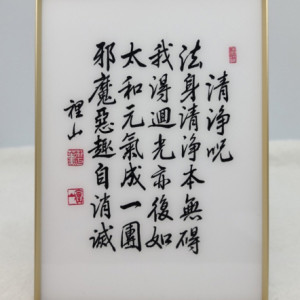 清浄呪
法身清浄本無碍
我得迴光亦復如
太和元氣成一團
邪魔惡趣自消滅
裡山